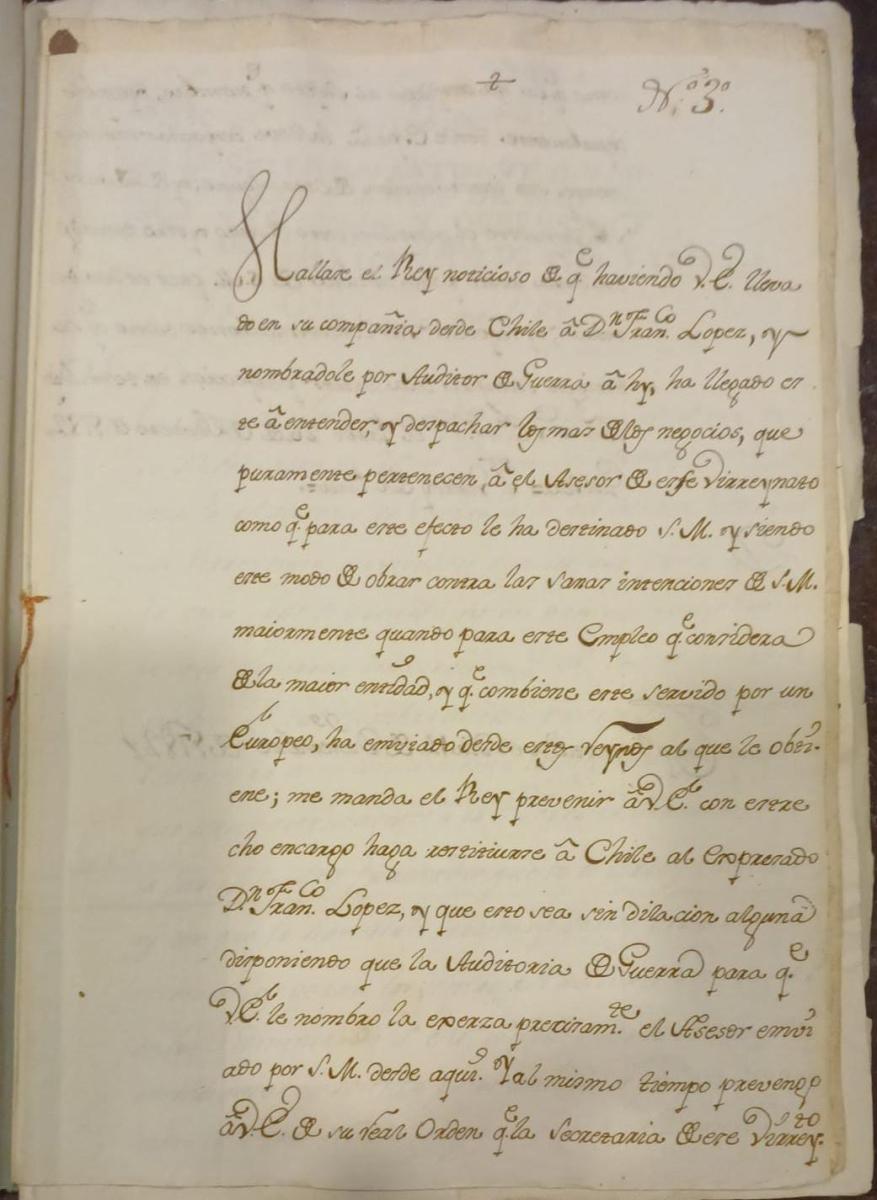 N.º 3º
Hallase el Rey noticioso de q.e haviendo V.E. lleva
do en su compañia, desde Chile â D.n Fran.co Lopez, y
nombradole por Auditor de Guerra â hy, ha llegado es
te â entender, y despachar los mas de los negocios, que
puramente pertenecen, â el Asesor de esse Virreynato
como q.e para este efecto le ha destinado S.M. y siendo
este modo de obrar contra las sanas intenciones de S.M.
maiormente quando para este Empleo q.e considera
de la maior entidad, y q.e combiene este servido por un
Europeo, ha enviado desde estos reynos al que le obti-
ene; me manda el Rey prevenir â V.E. con estre
cho encargo haga restituirse â Chile al expresado
D.n Fran.co Lopez, y que esto sea sin dilacion alguna
disponiendo que la Auditoria de Guerra para q.e
V.E. le nombro la exerza precisam.te el Asesor envi
ado por S.M. desde aqui. Y al mismo tiempo prevengo
â V.E. de su real Orden q.e la Secretaria de ese Virrey.to